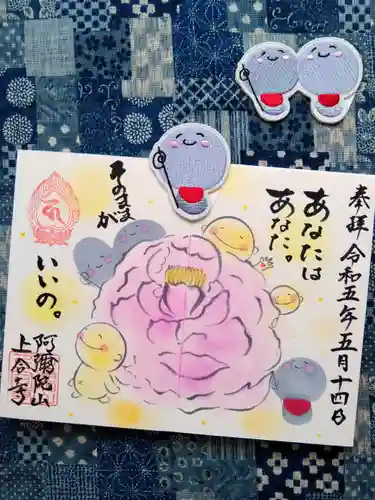 奉拝 令和五年五月十四日
あなたは
あなた。
そのまま
が
いいの。
阿彌陀山
上合寺